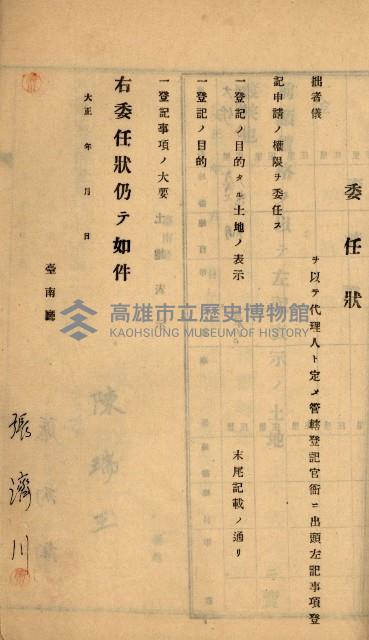 委任狀
拙者儀　ヲ以テ代理人ト定メ管轄登記官衙ニ出頭左記事項登
記申請ノ權限ヲ委任ス
一登記ノ目的タル土地ノ表示　末尾記載ノ通リ
一登記ノ目的
一登記事項ノ大要
右委任狀仍テ如件
大正　年　月　日
臺南廳
張濟川
陳瑞玉
高雄市立歷史博物館
KAOHSIUNG MUSEUM OF HISTORY